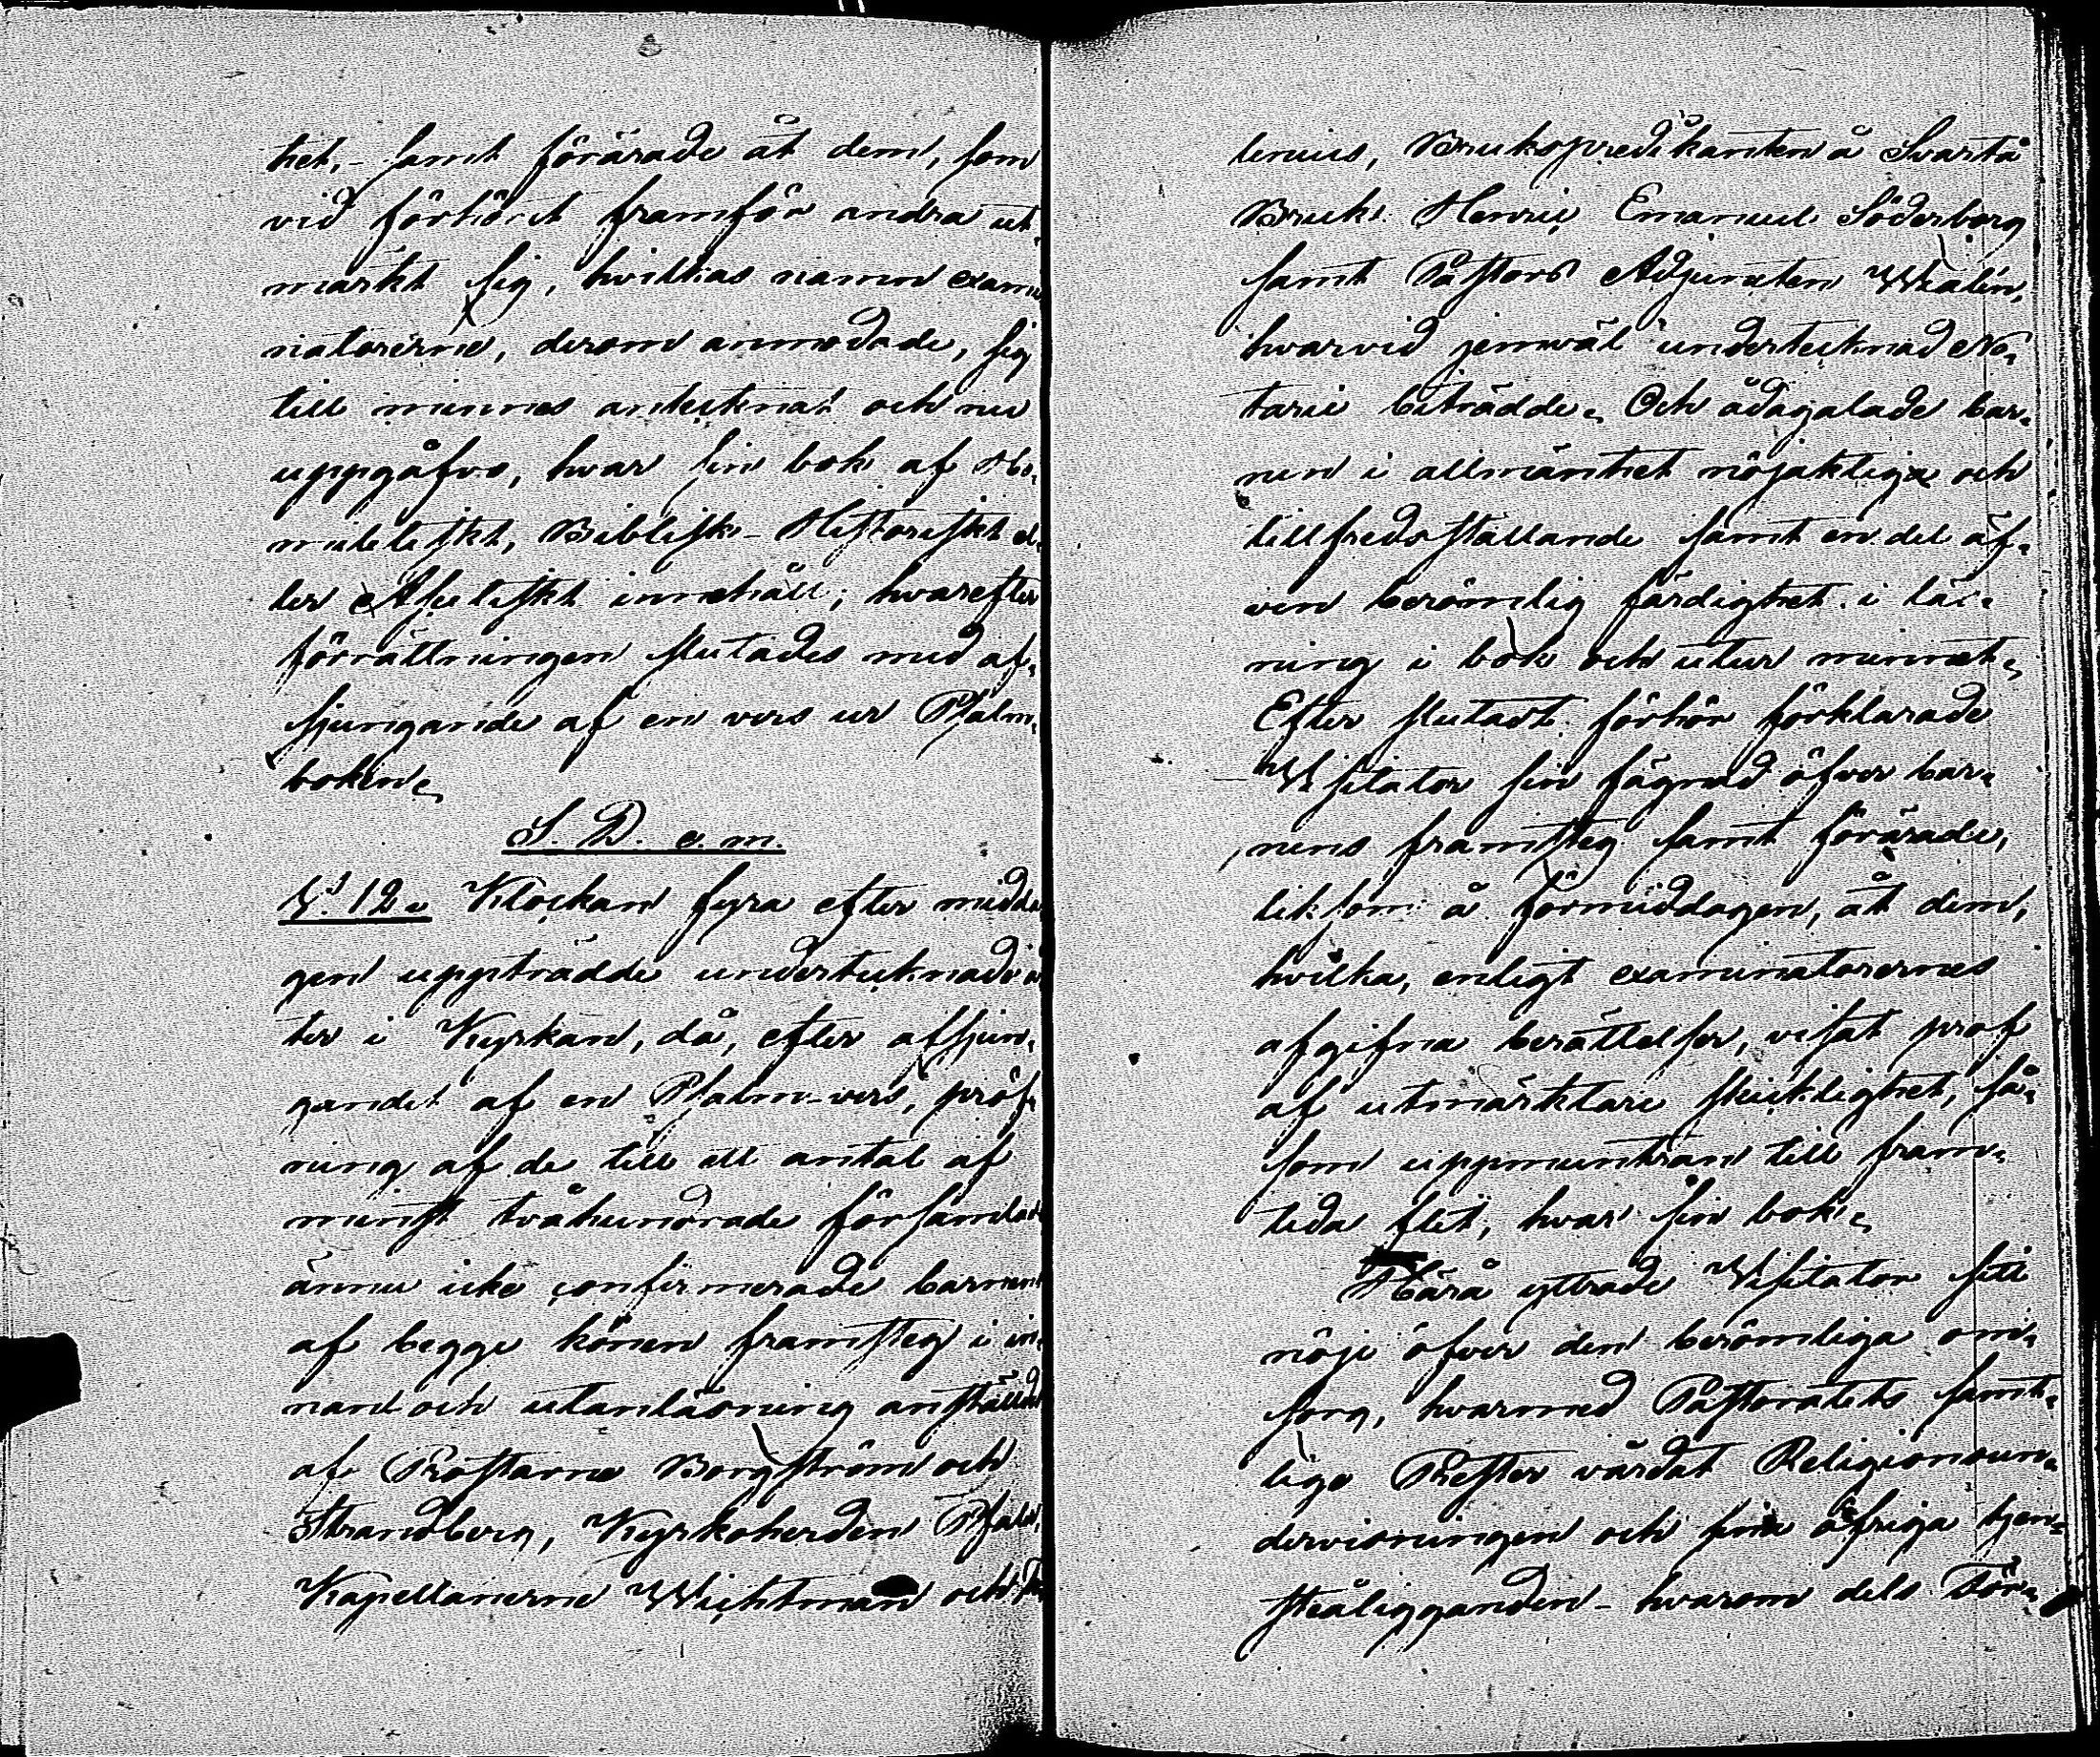 het, - samt förärade åt dem, som
vid förhöret framför andra ut-
märkt sig, hvilkas namn exami-
natorerne, derom anmodade, sig
till minnes antecknat och nu
uppgåfvo, hvar sin bok af Ho-
miletiskt, Biblisk-Historiskt el-
ler Asketiskt innehåll; hvarefter
förrättningen slutades med af-
sjungande af en vers ur Psalm-
boken.
S. D. e. m.
§. 12. Klockan fyra efter midda-
gen uppträdde undertecknad å
ter i Kyrkan, då, efter afsjun-
gandet af en Psalm-vers, pröf-
ning af de till ett antal af
minst tvåhundrade församlade
ännu icke confirmerade barnens
af begge könen framsteg i in-
nan och utanläsning anställdes
af Prostarne Borgström och
Strandberg, Kyrkoherden
Kapellanerne Wichtman och
lenius, Brukspredikanten å Svartå
Bruk Henric Emanuel Söderborg
samt Pastors Adjuncten Walin,
hvarvid jemväl undertecknad No-
tarie biträdde. Och ådagalade bar-
nen i allmänhet nöjaktiga och
tillfredsställande samt en del äf-
ven berömlig färdighet i läs-
ning i bok och utur minnet.
Efter slutadt förhör förklarade
Visitator sin fägnad öfver bar-
nens framsteg samt förärade,
liksom å förmiddagen, åt dem,
hvilka, enligt examinatorernes
afgifna berättelser, visat prof
af utmärktare skicklighet, så-
som uppmuntran till fram-
tida flit, hvar sin bok.
Härå yttrade Visitator sitt
nöje öfver den berömliga om-
sorg, hvarmed Pastoratets samt-
lige Prester vårdat Religionsun-
dervisningen och sina öfriga tjen-
steåligganden - hvarom dels För-